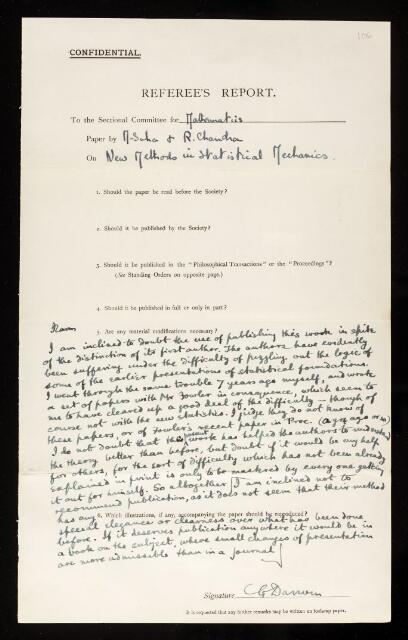 106
CONFIDENTIAL.
REFEREE'S REPORT.
To the Sectional Committee for Mathematics
Paper by M. Saha & R. Chandra
On New Methods in Statistical Mechanics.
1. Should the paper be read before the Society?
2. Should it be published by the Society?
3. Should it be published in the "Philosophical Transactions" or the "Proceedings"?
(See Standing Orders on opposite page.)
4. Should it be published in full or only in part?
5. Are any material modifications necessary?
I am inclined to doubt the use of publishing this work in spite
of the distinction of its first author. The authors have evidently
been suffering under the difficulty of puzzling out the logic of
some of the earlier presentations of statistical foundations.
I went through the same trouble 7 years ago myself, and wrote
a set of papers with Mr Fowler in consequence, which seem to
me to have cleared up a good deal of the difficulty — though of
course not with the new statistics. I judge they do not know of
these papers, or of Fowler's recent paper in Proc.
I do not doubt that the work has helped the authors to understand
the theory better than before, but doubt if it would be any help
for others, for the sort of difficulty which has not been already
explained in print is only to be mastered by every one getting
it out for himself. So altogether I am inclined not to
recommend publication, as it does not seem that their method
has any
6. Which illustrations, if any, accompanying the paper should be reproduced?
special elegance or clearness over what has been done
before. If it deserves publication anywhere it would be in
a book on the subject, where small changes of presentation
are more admissible than in a journal
Signature C G Darwin
It is requested that any further remarks may be written on foolscap paper.